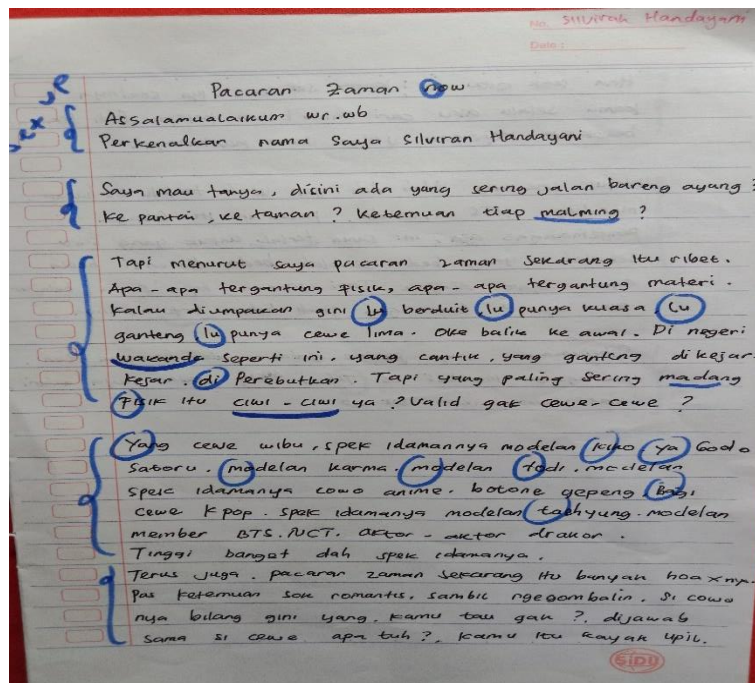 No. Silvirah Handayani
Date :
Pacaran Zaman now
Assalamualaikum wr.wb
Perkenalkan nama saya Silviran Handayani
Saya mau tanya, disini ada yang sering jalan bareng ayang ?
ke pantai, ke taman ? ketemuan tiap malming ?
Tapi menurut saya pacaran zaman sekarang itu ribet.
Apa-apa tergantung fisik, apa-apa tergantung materi.
kalau diumpamakan gini lu berduit, lu punya kuasa, lu
ganteng lu punya cewe lima. Oke balik ke awal. Di negeri
wakanda seperti ini, yang cantik, yang ganteng dikejar-
kejar, di perebutkan. Tapi yang paling sering madang
Fisik itu ciwi-ciwi ya ? Valid gak cewe-cewe ?
Yang cewe wibu, spek idamannya modelan kiko ya Godo
Satoru. modelan karma. modelan todi. modelan
spek idamanya cowo anime. botone gepeng. Bagi
cewe Kpop. spek idamanya modelan taehyung. modelan
member BTS. NCT. aktor-aktor drakor.
Tinggi banget dah spek idamanya.
Terus juga. pacaran zaman sekarang itu banyak hoaxnya.
Pas ketemuan sok romantis. sambil ngegombalin. si cowo
nya bilang gini yang, kamu tau gak ?. dijawab
sama si cewe apa tuh ?. kamu itu kayak upil.
SIDU